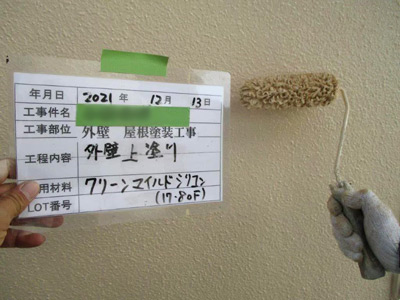 年月日 2021年 12月 13日
工事件名
工事部位 外壁 屋根塗装工事
工程内容 外壁上塗り
用材料 クリーンマイルドシリコン
LOT番号 (17-80F)